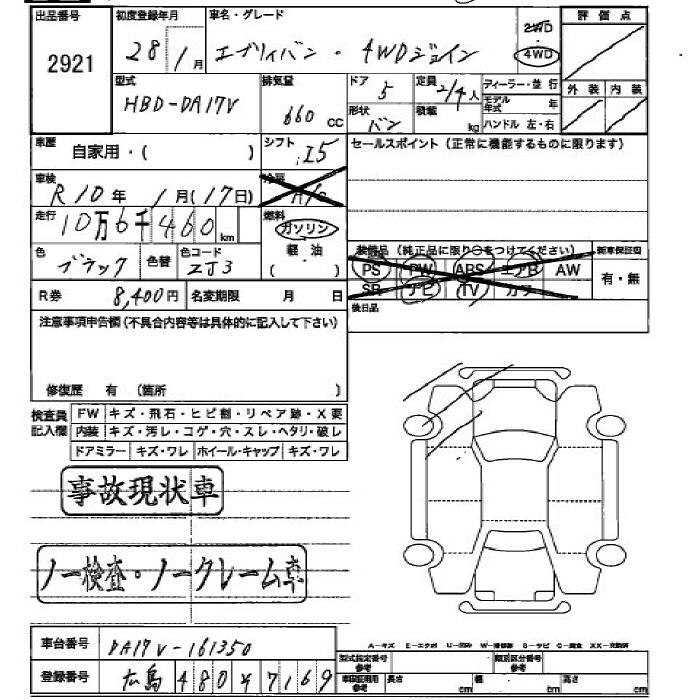 出品番号 2921
初度登録年月 28年 1月
車名・グレード エブリィバン・4WDジョイン
2WD 4WD
評価点
外装 内装
型式 HBD-DA17V
排気量 660 cc
ドア 5
形状 バン
定員 2/4人
積載 kg
ディーラー・並行
モデル年式 年
ハンドル 左・右
車歴 自家用・( )
シフト I5
セールスポイント (正常に機能するものに限ります)
車検 R10年 1月(17日)
冷房 A/C
走行 10万6千460km
燃料 ガソリン 軽油 ( ・ )
色 ブラック 色替 色コード ZJ3
装備品 (純正品に限り○をつけてください)
新車保証書
PS PW ABS エアB AW
SR ナビ TV カワ
有・無
後日品
R券 8,400円 名変期限 月 日
注意事項申告欄(不具合内容等は具体的に記入して下さい)
修復歴 有 (箇所 )
検査員記入欄
FW キズ・飛石・ヒビ割・リペア跡・X要
内装 キズ・汚レ・コゲ・穴・スレ・ヘタリ・破レ
ドアミラー キズ・ワレ ホイール・キャップ キズ・ワレ
事故現状車
ノー検査・ノークレーム車
A-キズ E-エクボ U-凹み W-補修跡 S-サビ C-腐食 XX-交換済
車台番号 DA17V-161350
登録番号 広島 480 ヤ 7169
型式指定番号 参考
類別区分番号 参考
車検証明用 参考
長さ cm 幅 cm 高さ cm